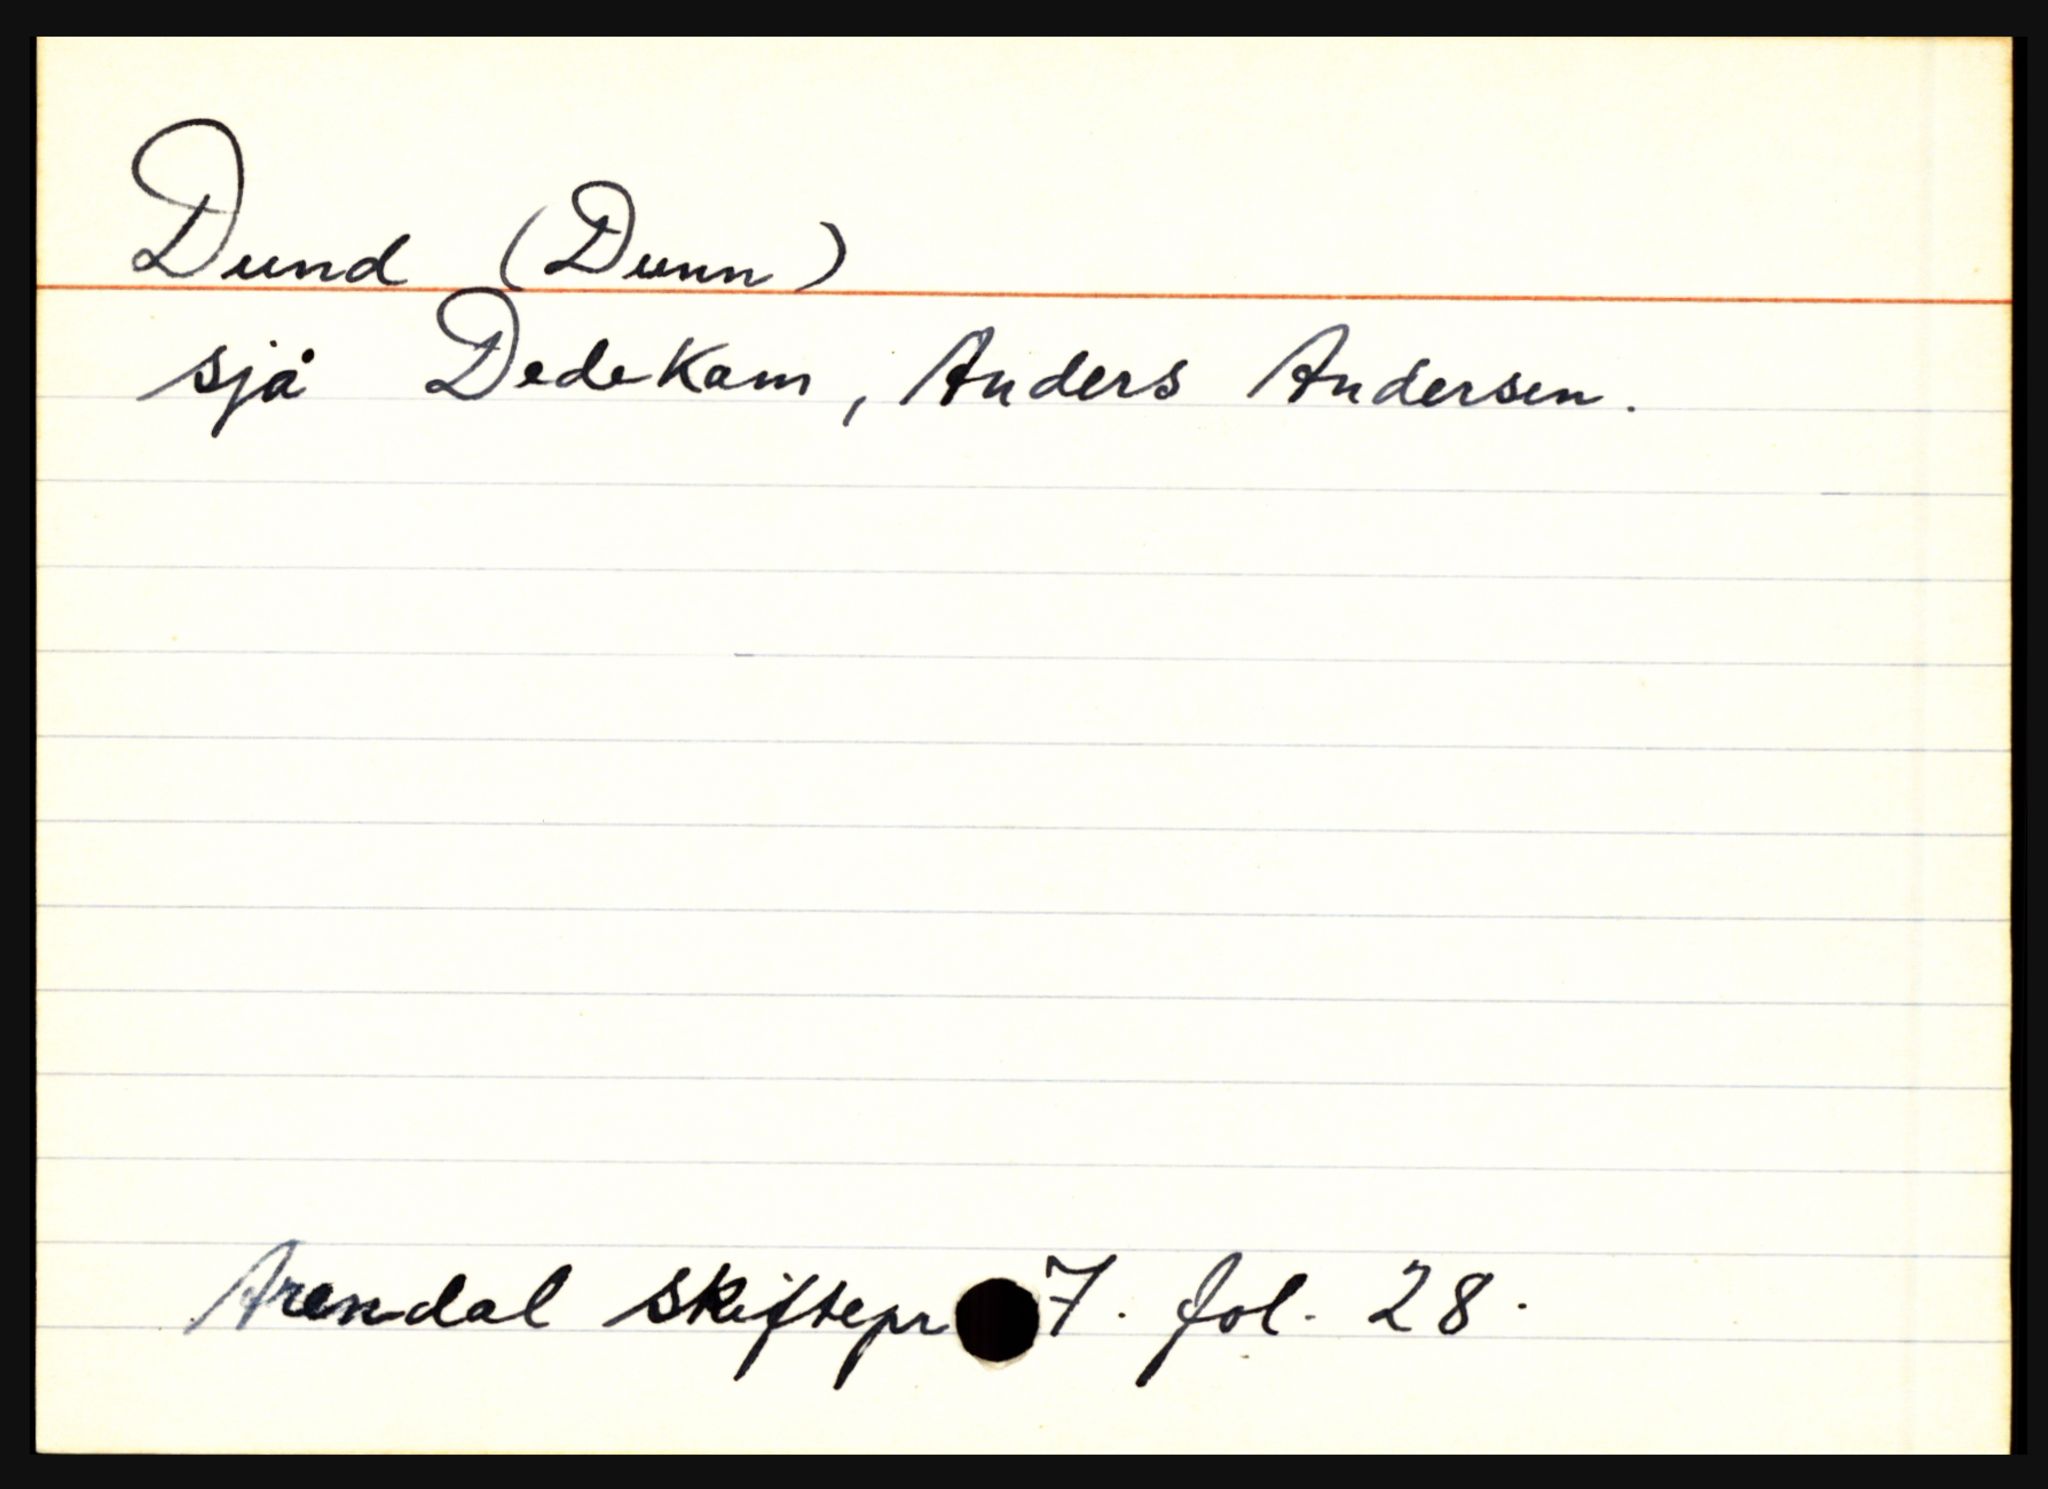 Dund (Dunn)
sjå Dedekam, Anders Andersen.
Arendal skiftepr 7. fol. 28.